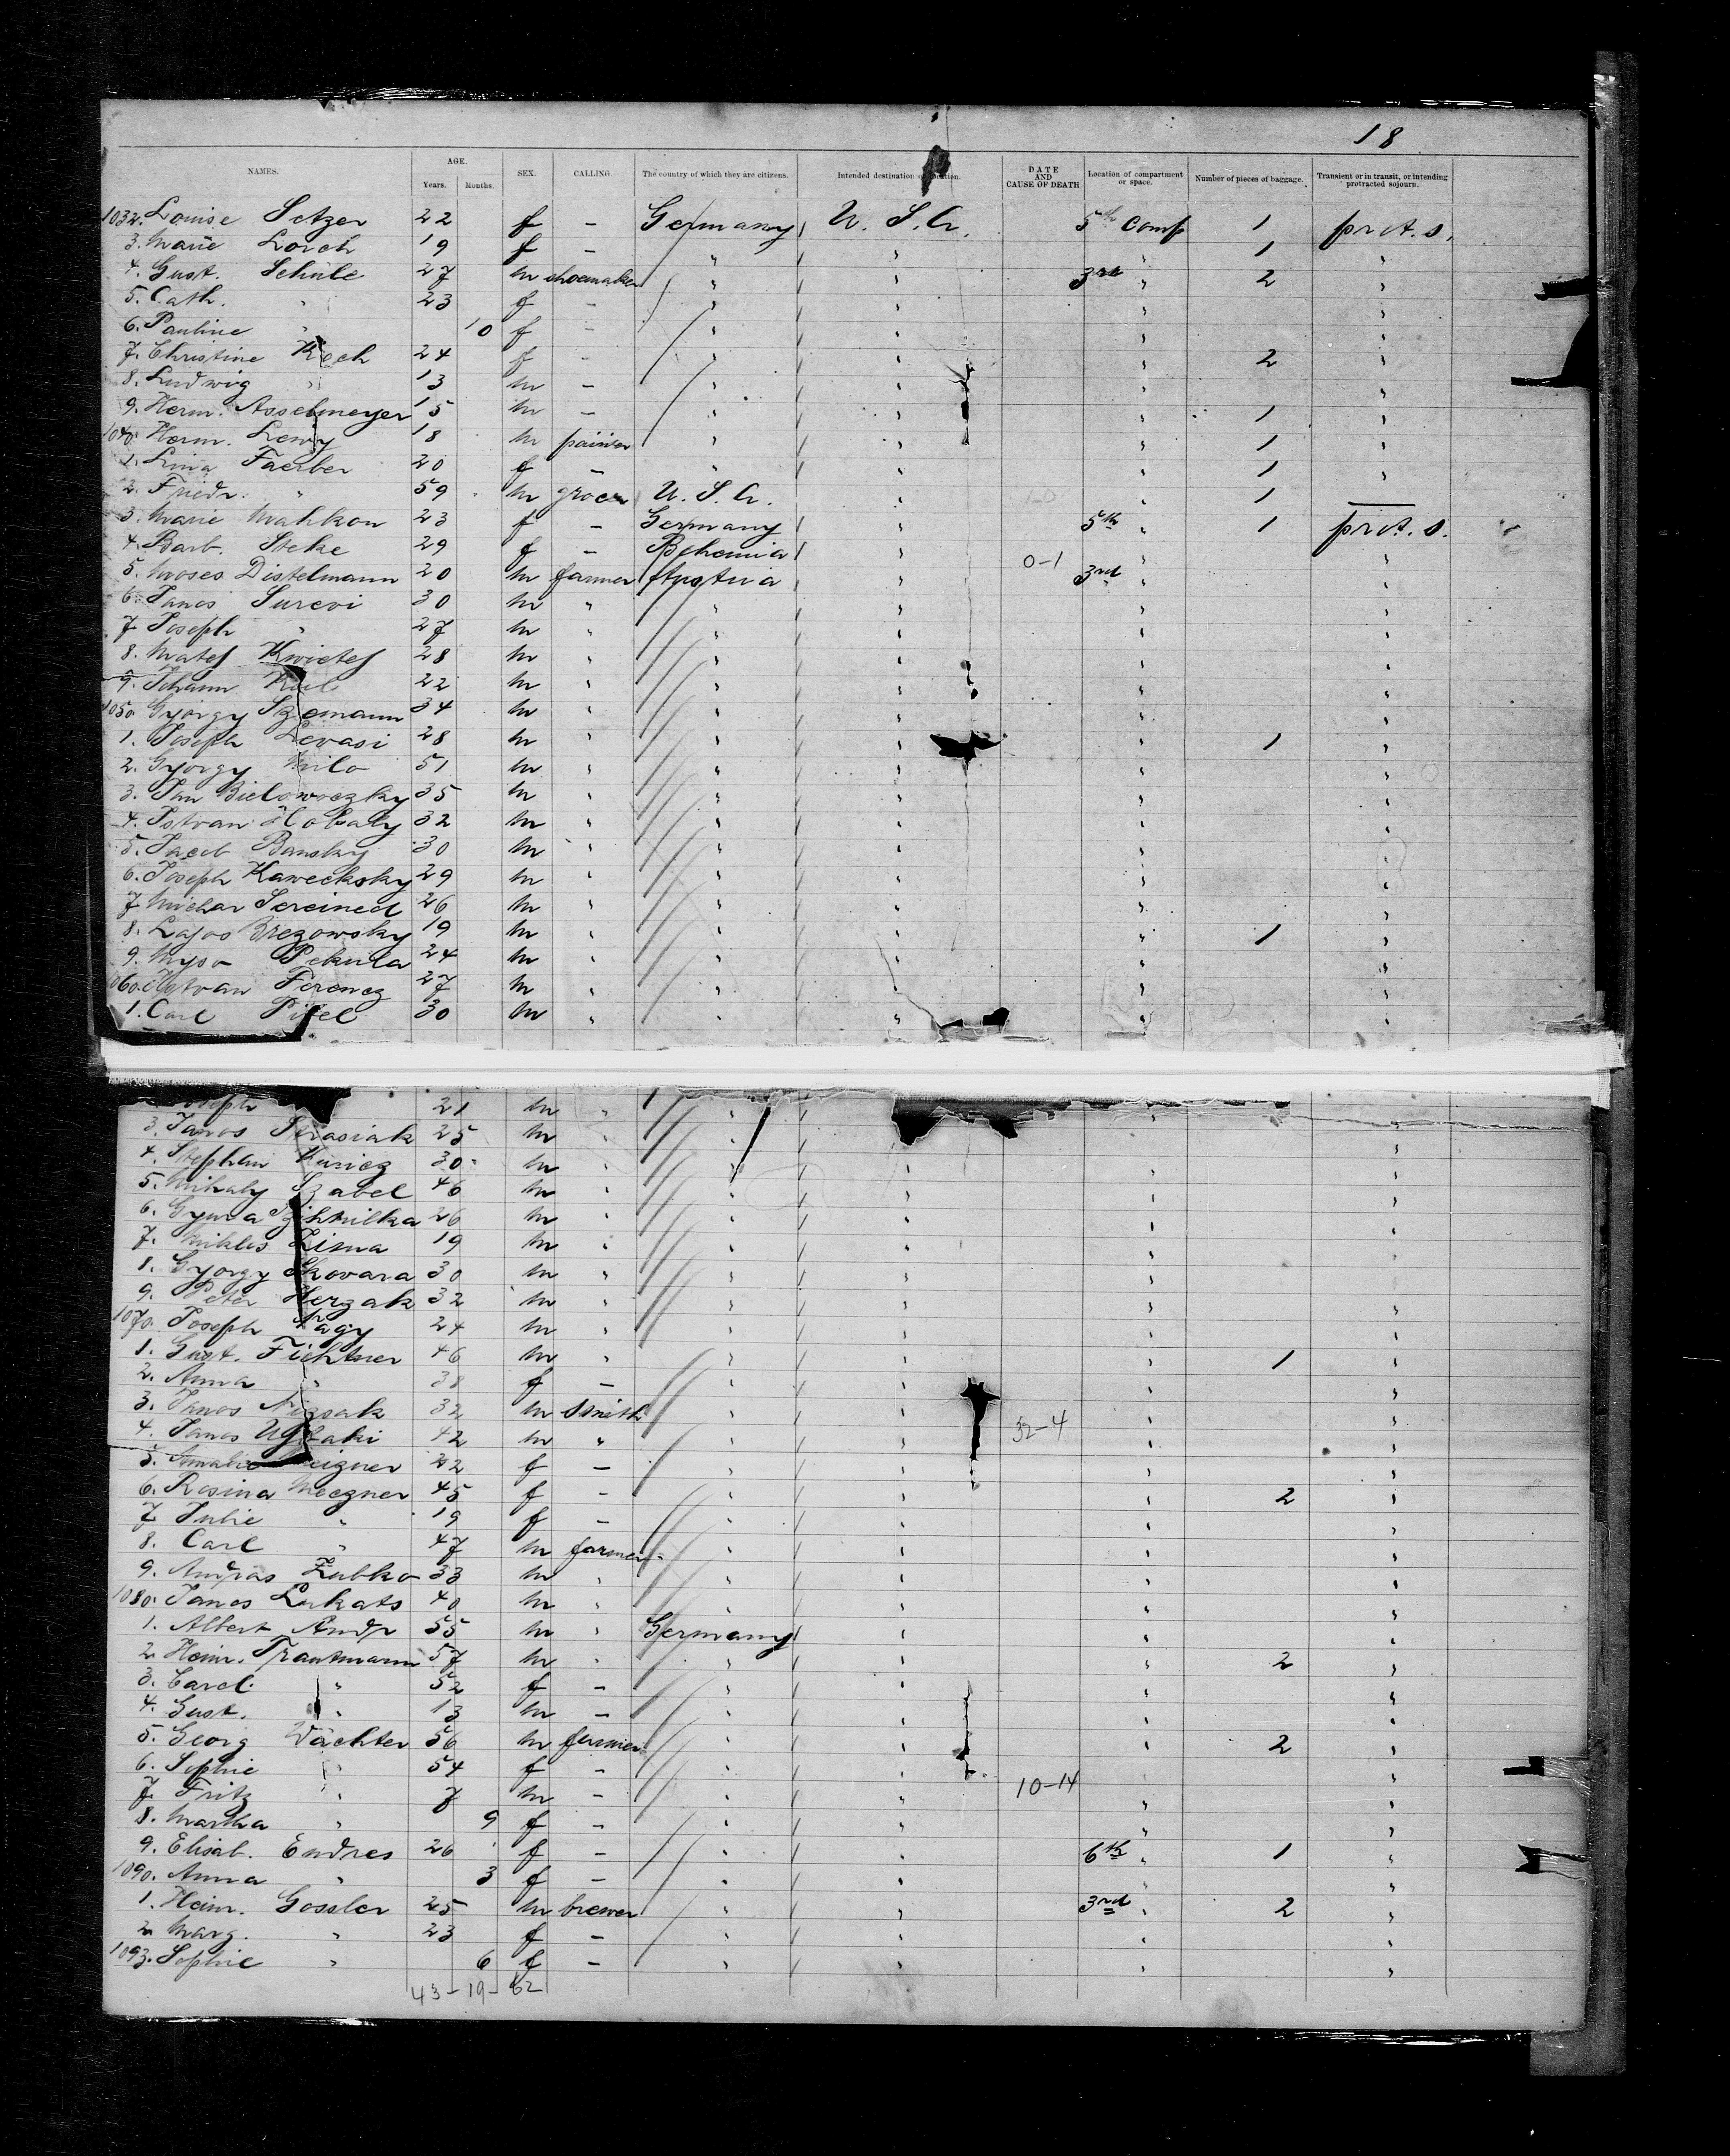 18
NAMES. AGE. Years. Months. SEX. CALLING. The country of which they are citizens. Intended destination DATE AND CAUSE OF DEATH Location of compartment or space. Number of pieces of baggage. Transient or in transit, or intending protracted sojourn.
1032. Louise Setzer 22 f — Germany U. S. A. 5th Comp 1 prot. s.
3. Marie Lorch 19 f — " " " 1 "
4. Gust. Schüle 27 m shoemaker " " 3rd " 2 "
5. Cath. " 23 f — " " " "
6. Pauline " 10 f — " " " "
7. Christine Koch 24 f — " " " 2 "
8. Ludwig " 13 m — " " " "
9. Herm. Asselmeyer 15 m — " " " 1 "
1040. Herm. Lewy 18 m painter " " " 1 "
1. Lina Faerber 20 f — " " " 1 "
2. Friedr. " 59 m grocer U. S. A. " " 1 —
3. Marie Mahkorn 23 f — Germany " 5th " 1 prot. s.
4. Barb. Steke 29 f — Bohemia " 0-1 " "
5. Moses Distelmann 20 m farmer Austria " 3rd " "
6. Janos Surevi 30 m " " " " "
7. Joseph " 27 m " " " " "
8. Matej Kwietej 28 m " " " " "
9. Johann 22 m " " " " "
1050. György Szemann 34 m " " " " "
1. Joseph Levasi 28 m " " " " 1 "
2. György Milo 51 m " " " " "
3. Jan Bielowoczky 35 m " " " " "
4. Istvan Hobaly 32 m " " " " "
5. Jacob Bansky 30 m " " " " "
6. Joseph Kawecksky 29 m " " " " "
7. Michar Sereined 26 m " " " " "
8. Lajos Brezowsky 19 m " " " " 1 "
9. Myso Pekula 24 m " " " " "
1060. Istvan Ferencz 27 m " " " " "
1. Carl 30 m " " " " "
Joseph 21 m " " " " "
3. Janos Strasiak 25 m " " " " "
4. Stephan Kuricz 30 m " " " " "
5. Mihaly Szabel 46 m " " " " "
6. Gyura 26 m " " " " "
7. Miklos Zisna 19 m " " " " "
8. György Skovara 30 m " " " " "
9. Peter Herzak 32 m " " " " "
1070. Joseph Nagy 24 m " " " " "
1. Gust. Fichtner 46 m " " " " 1 "
2. Anna " 38 f — " " " "
3. Janos 32 m smith " " " "
4. Janos 42 m " " " 32-4 " "
5. Amalie 22 f — " " " "
6. Rosina Meczner 45 f — " " " 2 "
7. Julie " 19 f — " " " "
8. Carl " 47 m farmer " " " "
9. Andras Zubko 33 m " " " " "
1080. Janos Lukats 40 m " " " " "
1. Albert Andr 55 m " Germany " " "
2. Heinr. Trautmann 57 m " " " " 2 "
3. Carol. " 52 f — " " " "
4. Gust. " 13 m — " " " "
5. Georg Wächter 56 m farmer " " " 2 "
6. Sophie " 54 f — " " " "
7. Fritz " 7 m — " " 10-14 " "
8. Martha " 9 f — " " " "
9. Elisab. Endres 26 f — " " 6th " 1 "
1090. Anna " 3 f — " " " "
1. Heinr. Gossler 25 m brewer " " 3rd " 2 "
2. Marg. " 23 f — " " " "
1093. Sophie " 6 f — " " " "
43-19-62